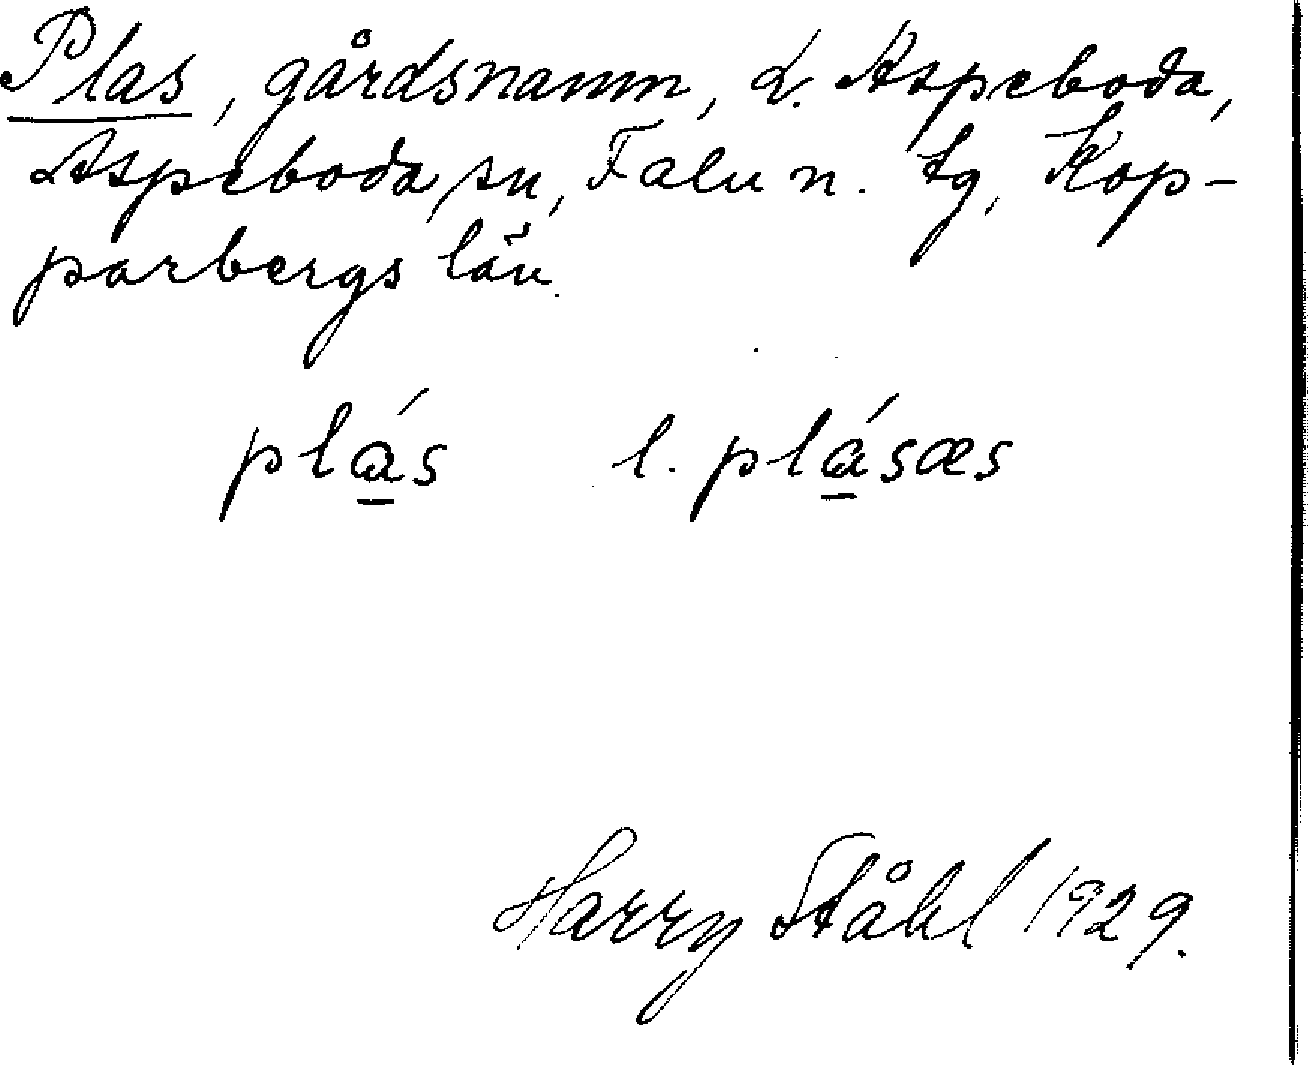 Plas, gårdsnamn, d. Aspeboda,
Aspeboda sn, Falu n. tg, Kop-
parbergs län.
plás l. plásæs
Harry Ståhl 1929.